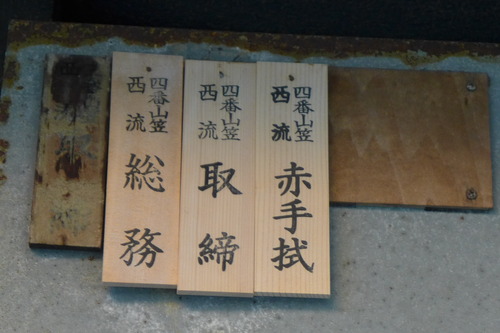 四番山笠
西流
赤手拭
四番山笠
西流
取締
四番山笠
西流
総務